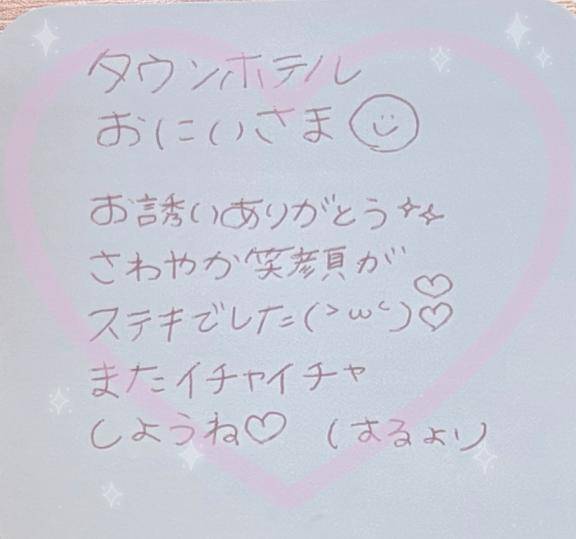 タウンホテル
おにいさま
お誘いありがとう
さわやか笑顔が
ステキでした(>ω<)♡♡
またイチャイチャ
しようね♡ (まるより)